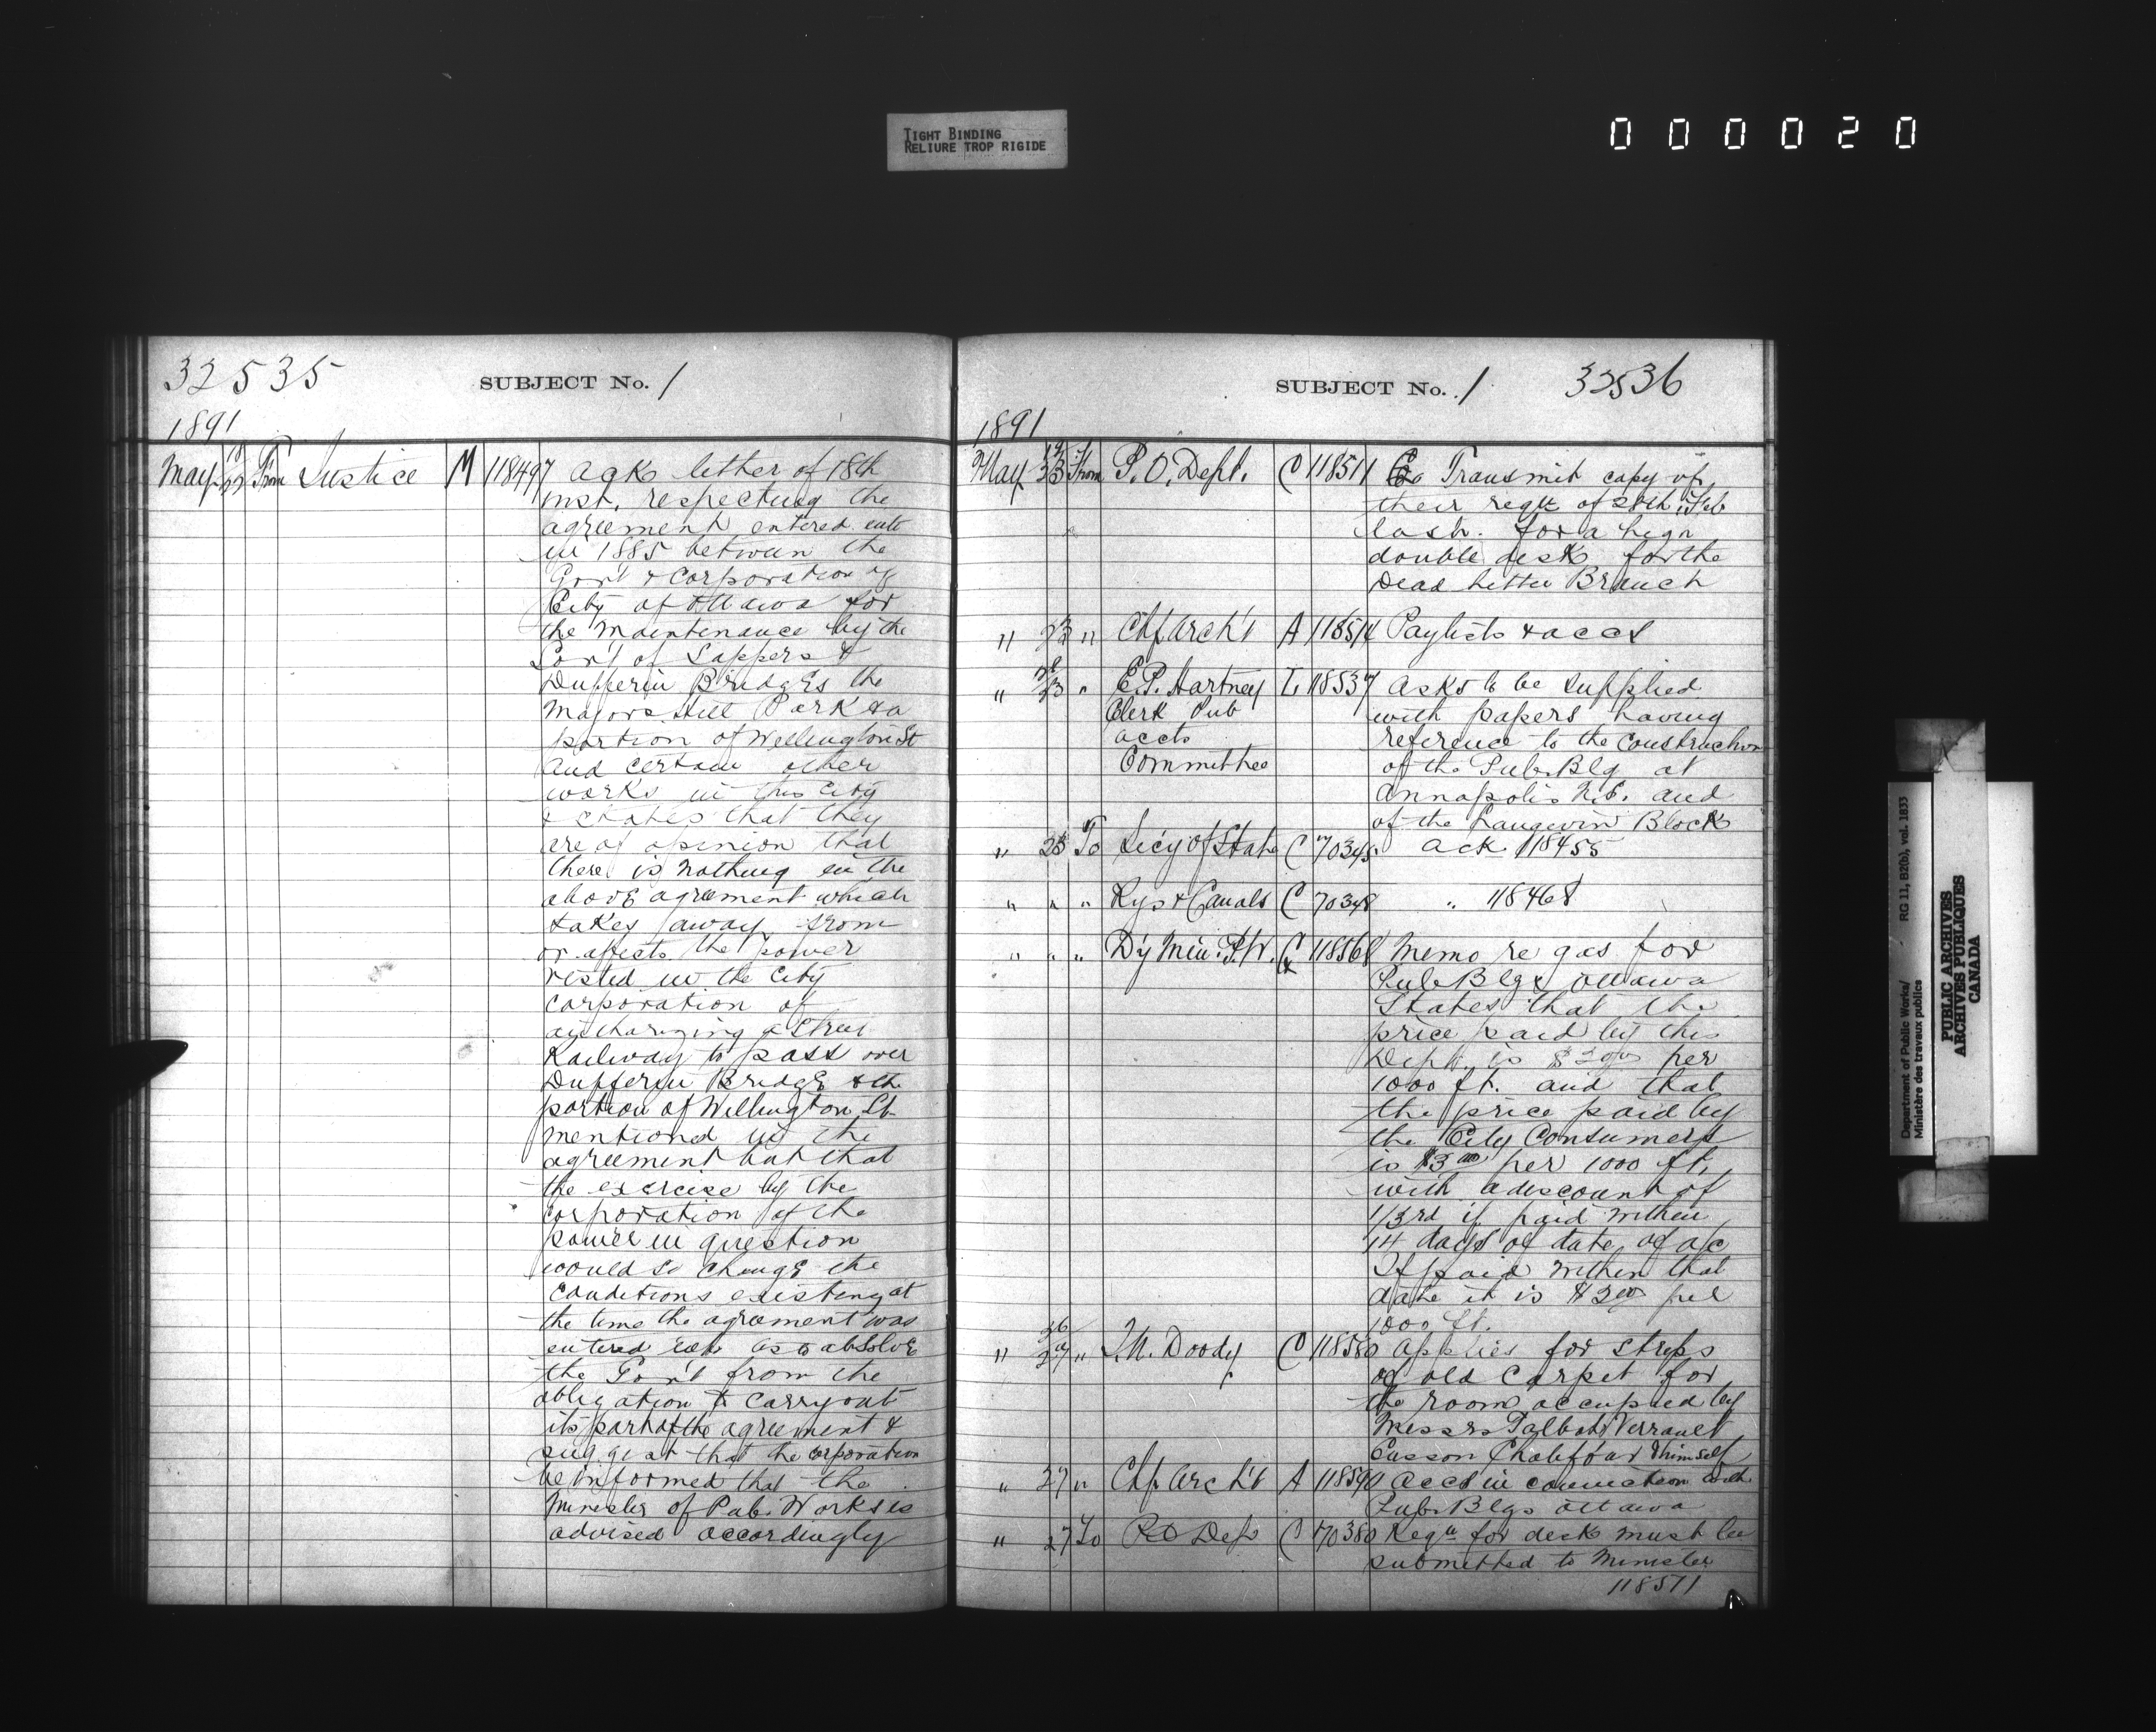 TIGHT BINDING
RELIURE TROP RIGIDE
000020
32535
SUBJECT No. 1
1891
May 18 22 From Justice M 118497 Ack letter of 18th
inst. respecting the
agreement entered into
in 1885 between the
Gov't & Corporation of
City of Ottawa for
the maintenance by the
Gov't of Sappers &
Dufferin Bridges the
Majors Hill Park & a
portion of Wellington St
and certain other
works in this City
& states that they
are of opinion that
there is nothing in the
above agreement which
takes away from
or affects the power
vested in the City
Corporation of
authorizing a Street
Railway to pass over
Dufferin Bridge & the
portion of Wellington St
mentioned in the
agreement but that
the exercise by the
corporation of the
power in question
would so change the
conditions existing at
the time the agreement was
entered into as to absolve
the Gov't from the
obligation to carry out
its part of the agreement &
suggest that the corporation
be informed that the
Minister of Pub. Works is
advised accordingly
SUBJECT No. 1 32536
1891
May 19 23 From P. O. Dept. C 118511 Transmit copy of
their reqn of 28th Feb
last. for a high
double desk for the
Dead Letter Branch
" 23 " Chf Arch't A 118514 Paylists & accs
" 23 " E.P. Hartney L 118537 Asks to be supplied
Clerk Pub with papers having
accts reference to the construction
Committee of the Pub. Blg at
Annapolis N.S. and
of the Langevin Block
" 23 To Sec'y of State C 70345 Ack 118455
" " " Rys & Canals C 70348 " 118468
" " " Dy Min. P.W. C 118568 Memo re gas for
Pub Blgs Ottawa
States that the
price paid by this
Dept. is $2.00 per
1000 ft. and that
the price paid by
the City Consumers
is $3.00 per 1000 ft.
with a discount of
1/3rd if paid within
14 days of date of a/c
If paid within that
date it is $2.00 per
1000 ft.
" 26 27 " Doody C 118580 Applies for strips
of old Carpet for
the room occupied by
Messrs Talbot, Verrault
Casson & himself
" 27 " Chf Arch't A 118590 Accs in connection with
Pub. Blgs Ottawa
" 27 To P O Dep C 70380 Reqn for desk must be
submitted to Minister
118511
Department of Public Works/ RG 11, B2(b), vol. 1833
Ministère des travaux publics
PUBLIC ARCHIVES
ARCHIVES PUBLIQUES
CANADA